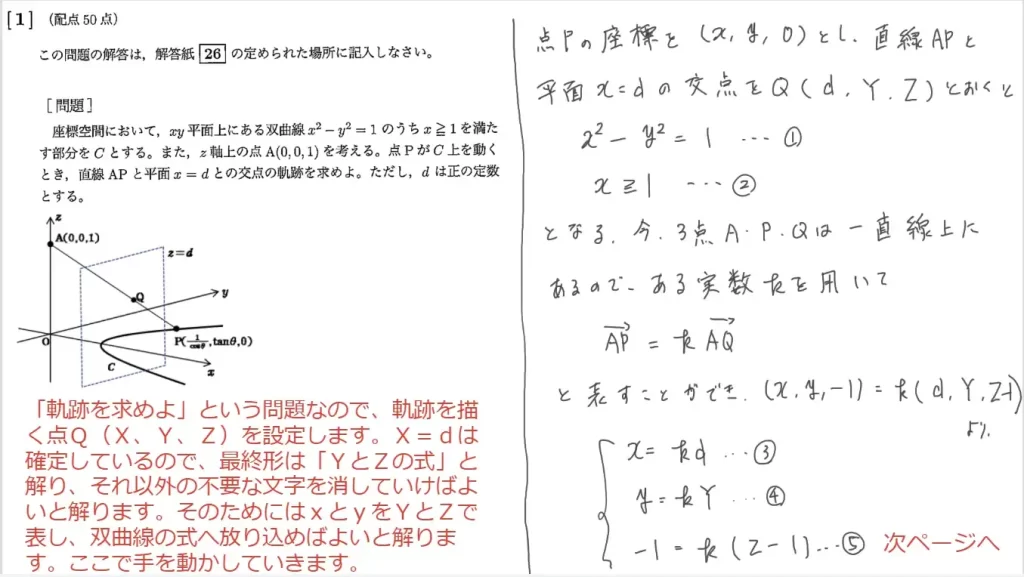 [1] (配点 50 点)
この問題の解答は,解答紙 26 の定められた場所に記入しなさい。
[問題]
座標空間において,xy 平面上にある双曲線 x² − y² = 1 のうち x ≧ 1 を満た
す部分を C とする。また,z 軸上の点 A(0, 0, 1) を考える。点 P が C 上を動く
とき,直線 AP と平面 x = d との交点の軌跡を求めよ。ただし,d は正の定数
とする。
z
A(0,0,1)
z=d
Q
y
O
P(1/cosθ,tanθ,0)
C
x
「軌跡を求めよ」という問題なので、軌跡を描
く点Q(X、Y、Z)を設定します。X=dは
確定しているので、最終形は「YとZの式」と
解り、それ以外の不要な文字を消していけばよ
いと解ります。そのためにはxとyをYとZで
表し、双曲線の式へ放り込めばよいと解りま
す。ここで手を動かしていきます。
点Pの座標を (x, y, 0) とし、直線APと
平面 x=d の交点を Q (d, Y, Z) とおくと
x² − y² = 1 … ①
x ≧ 1 … ②
となる. 今, 3点 A・P・Qは 一直線上に
あるので, ある実数 k を用いて
AP→ = k AQ→
と表すことができ, (x, y, −1) = k(d, Y, Z−1)
より,
x = kd … ③
y = kY … ④
−1 = k (Z − 1) … ⑤ 次ページへ